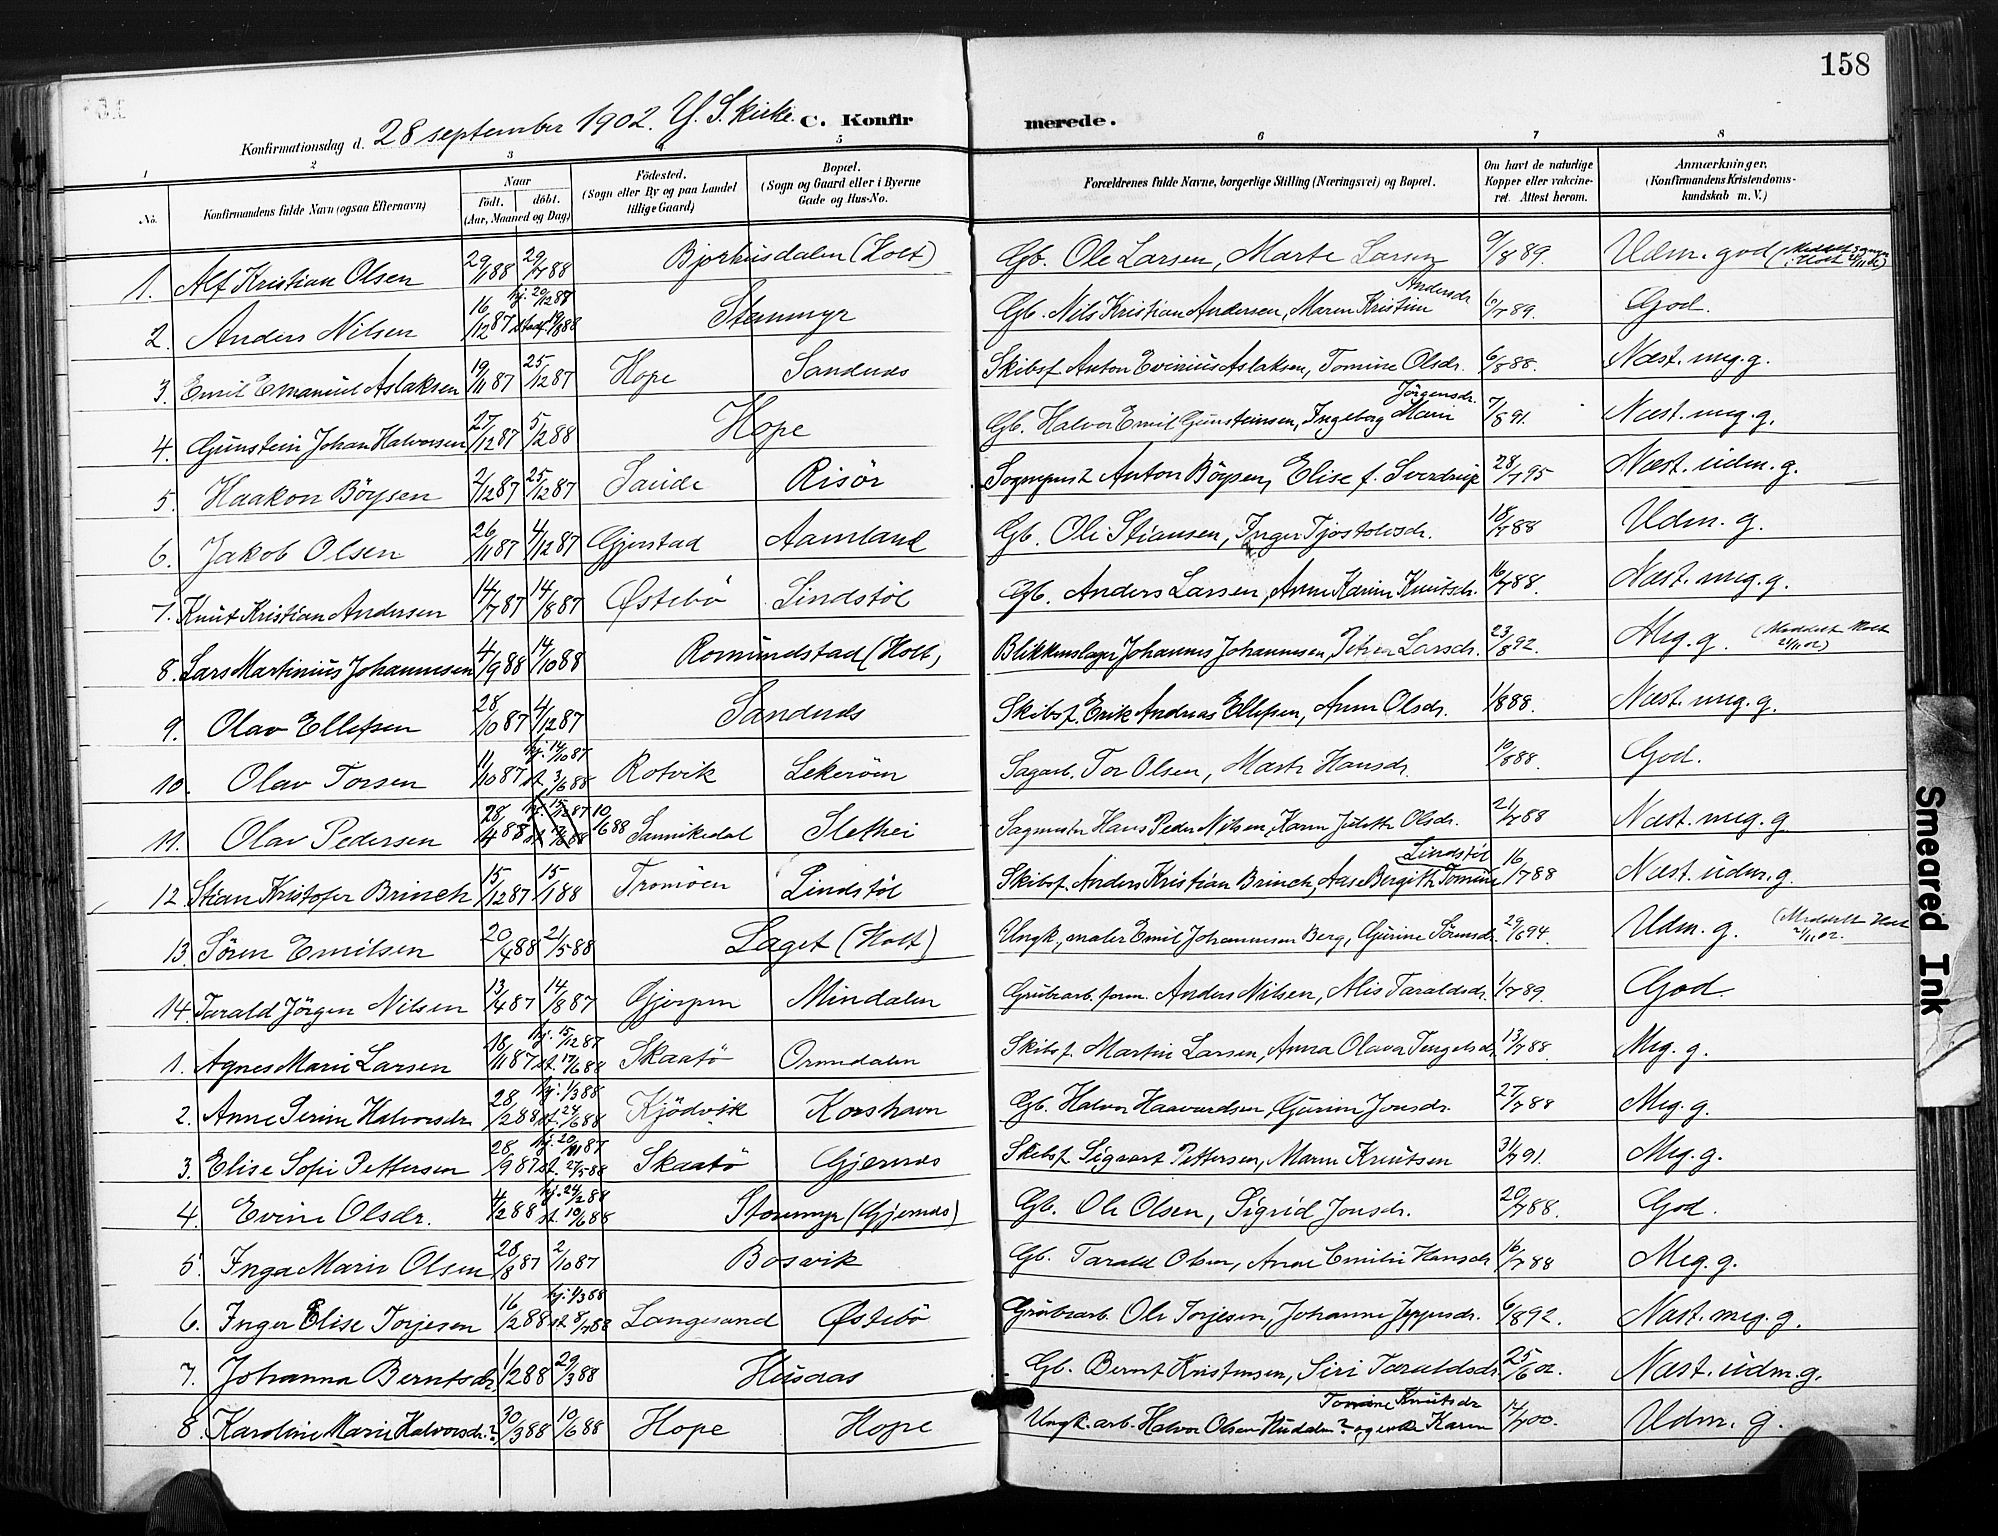 158
Konfirmationsdag d. 28 september 1902. Y. S. kirke. C. Konfirmerede.
1 2 3 4 5 6 7 8
No. Konfirmandens fulde Navn (ogsaa Efternavn) Naar födt. döbt. (Aar, Maaned og Dag) Födested. (Sogn eller By og paa Landet tillige Gaard) Bopæl. (Sogn og Gaard eller i Byerne Gade og Hus-No. Forældrenes fulde Navne, borgerlige Stilling (Næringsvei) og Bopæl. Om havt de naturlige Kopper eller vakcineret. Attest herom. Anmærkninger. (Konfirmandens Kristendomskundskab m. V.)
1. Alf Kristian Olsen 29/1 88 29/7 88 Bjorhusdalen (Holt) Gb. Ole Larsen, Marte Larsen 9/8 89. Udm. god
2. Anders Nilsen 16/12 87 hj. 20/12 88 Stenmyr Gb. Nils Kristian Andersen, Maren Kristine Andersdr. 6/7 89. God.
3. Emil Emanuel Aslaksen 19/11 87 25/12 87 Hope Sandnes Skibsf. Anton Evinius Aslaksen, Tomine Olsdr. 6/8 88. Næst. meg. g.
4. Gunstein Johan Halvorsen 27/12 87 5/2 88 Hope Gb. Halvor Emil Gunsteinsen, Ingeborg Marie Jörgensdr. 7/8 91. Næst. meg. g.
5. Haakon Böysen 2/12 87 25/12 87 Saude Risör Sogneprest Anton Böysen, Elise f. Sverdrup 28/7 95 Næst. udm. g.
6. Jakob Olsen 26/11 87 4/12 87 Gjerstad Aamland Gb. Ole Stiansen, Inger Tjostolvsdr. 18/7 88 Udm. g.
7. Knut Kristian Andersen 14/7 87 14/8 87 Østebö Lindstöl Gb. Anders Larsen, Anne Karine Knutsdr. 16/7 88. Næst. meg. g.
8. Lars Martinius Johannesen 4/9 88 14/10 88 Romundstad (Holt) Blikkenslager Johannes Johannesen, Petrea Larsdr. 23/8 92. Meg. g. (Meddelt Holt 24/11 02)
9. Olav Ellefsen 28/10 87 4/12 87 Sandnes Skibsf. Erik Andreas Ellefsen, Anne Olsdr. 1/8 88. Næst. meg. g.
10. Olav Torsen 11/10 87 hj. 14/10 87 st. 3/6 88 Rotvik Lekeröen Sagarb. Tor Olsen, Marte Hansdr. 10/8 88. God.
11. Olav Pedersen 28/4 88 10/6 88 Sannikedal Slethei Sagmester Hans Peder Nilsen, Karen Juliette Olsdr. 21/7 88 Næst. meg. g.
12. Stian Kristofer Brinch 15/12 87 15/1 88 Tromöen Lindstöl Skibsf. Anders Kristian Brinch, Aas Bergith Tomine Lindstöl 16/7 88 Næst. udm. g.
13. Sören Emilsen 20/4 88 21/5 88 Laget (Holt) Ungk., maler Emil Johannesen Berg, Gurine Sörensdr. 29/6 94. Udm. g. (Meddelt Holt 21/11 02.
14. Tarald Jörgen Nilsen 13/4 87 14/8 87 Gjerpen Mindalen Grubearb. form. Anders Nilsen, Alis Taraldsdr. 1/7 89. God.
1. Agnes Marie Larsen 18/11 87 hj. 15/12 87 st. 17/6 88 Skaatö Ormdalen Skibsf. Martin Larsen, Anna Olava Tengelsdr. 13/7 88. Meg. g.
2. Anne Serine Halvorsdr. 28/2 88 hj. 1/3 88 st. 24/6 88 Kjödvik Korshavn Gb. Halvor Haavardsen, Gurine Jonsdr. 27/7 88 Meg. g.
3. Elise Sofie Pettersen 28/9 87 hj. 20/11 87 st. 27/5 88 Skaatö Gjernes Skibsf. Sigvart Pettersen, Maren Knutsen 31/7 91. Meg. g.
4. Evine Olsdr. 4/2 88 hj. 24/2 88 st. 10/6 88 Storemyr (Gjernes) Gb. Ole Olsen, Sigrid Jonsdr. 20/7 88. God.
5. Inga Marie Olsen 28/8 87 2/10 87 Bosvik Gb. Tarald Olsen, Anne Emilie Hansdr. 16/7 88 Meg. g.
6. Inger Elise Torjesen 16/2 88 hj. 4/3 88 st. 8/7 88 Langesund Østebö Grubearb. Ole Torjesen, Johanne Jeppesdr. 6/8 92. Næst. meg. g.
7. Johanna Berntsdr. 1/2 88 29/3 88 Husaas Gb. Bernt Kristensen, Siri Taraldsdr. 25/6 02. Næst. udm. g.
8. Karoline Marie Halvorsdr. 30/3 88 10/6 88 Hope Hope Ungk. arb. Halvor Olsen og enke Karen Tomine Knutsdr 17/7 00. Udm. g.
Smeared Ink